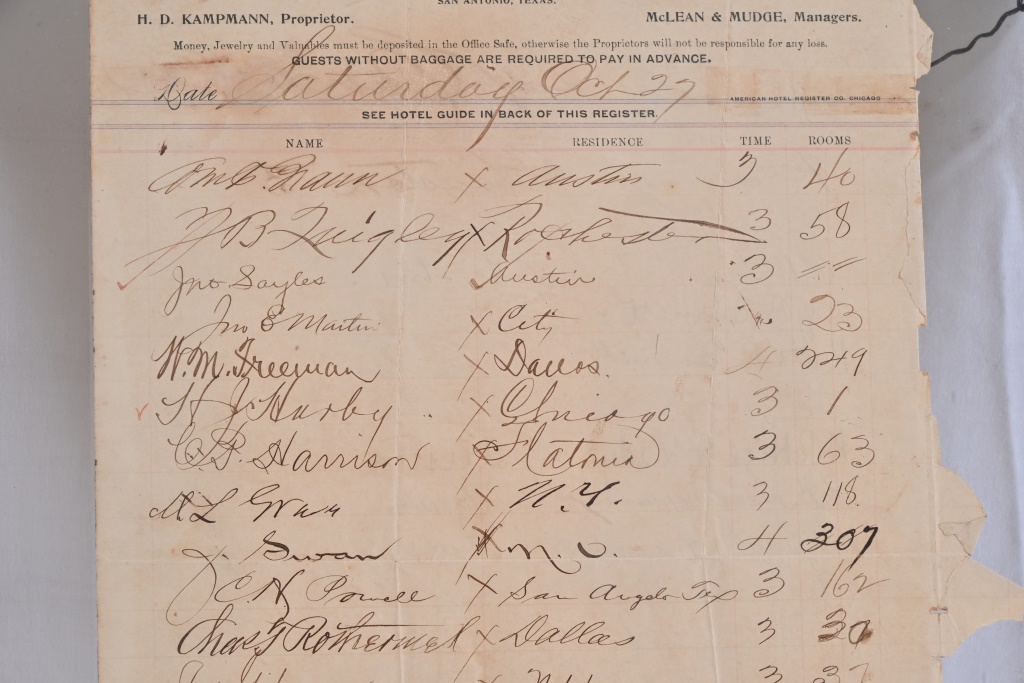 SAN ANTONIO, TEXAS.
H. D. KAMPMANN, Proprietor. McLEAN & MUDGE, Managers.
Money, Jewelry and Valuables must be deposited in the Office Safe, otherwise the Proprietors will not be responsible for any loss.
GUESTS WITHOUT BAGGAGE ARE REQUIRED TO PAY IN ADVANCE.
Date Saturday Oct 27 AMERICAN HOTEL REGISTER CO. CHICAGO
SEE HOTEL GUIDE IN BACK OF THIS REGISTER.
NAME RESIDENCE TIME ROOMS
x Austin 3 40
B Quigley x Rochester 3 58
Jno Sayles Austin 3 "
Jno E Martin x City 23
W. M. Freeman x Dallas. 4 249
Harby x Chicago 3 1
Harrison x Flatonia 3 63
L x N. Y. 3 118
Swan x 4 307
C N Powell x San Angelo Tex 3 162
Chas Rothermel x Dallas 3
3 37